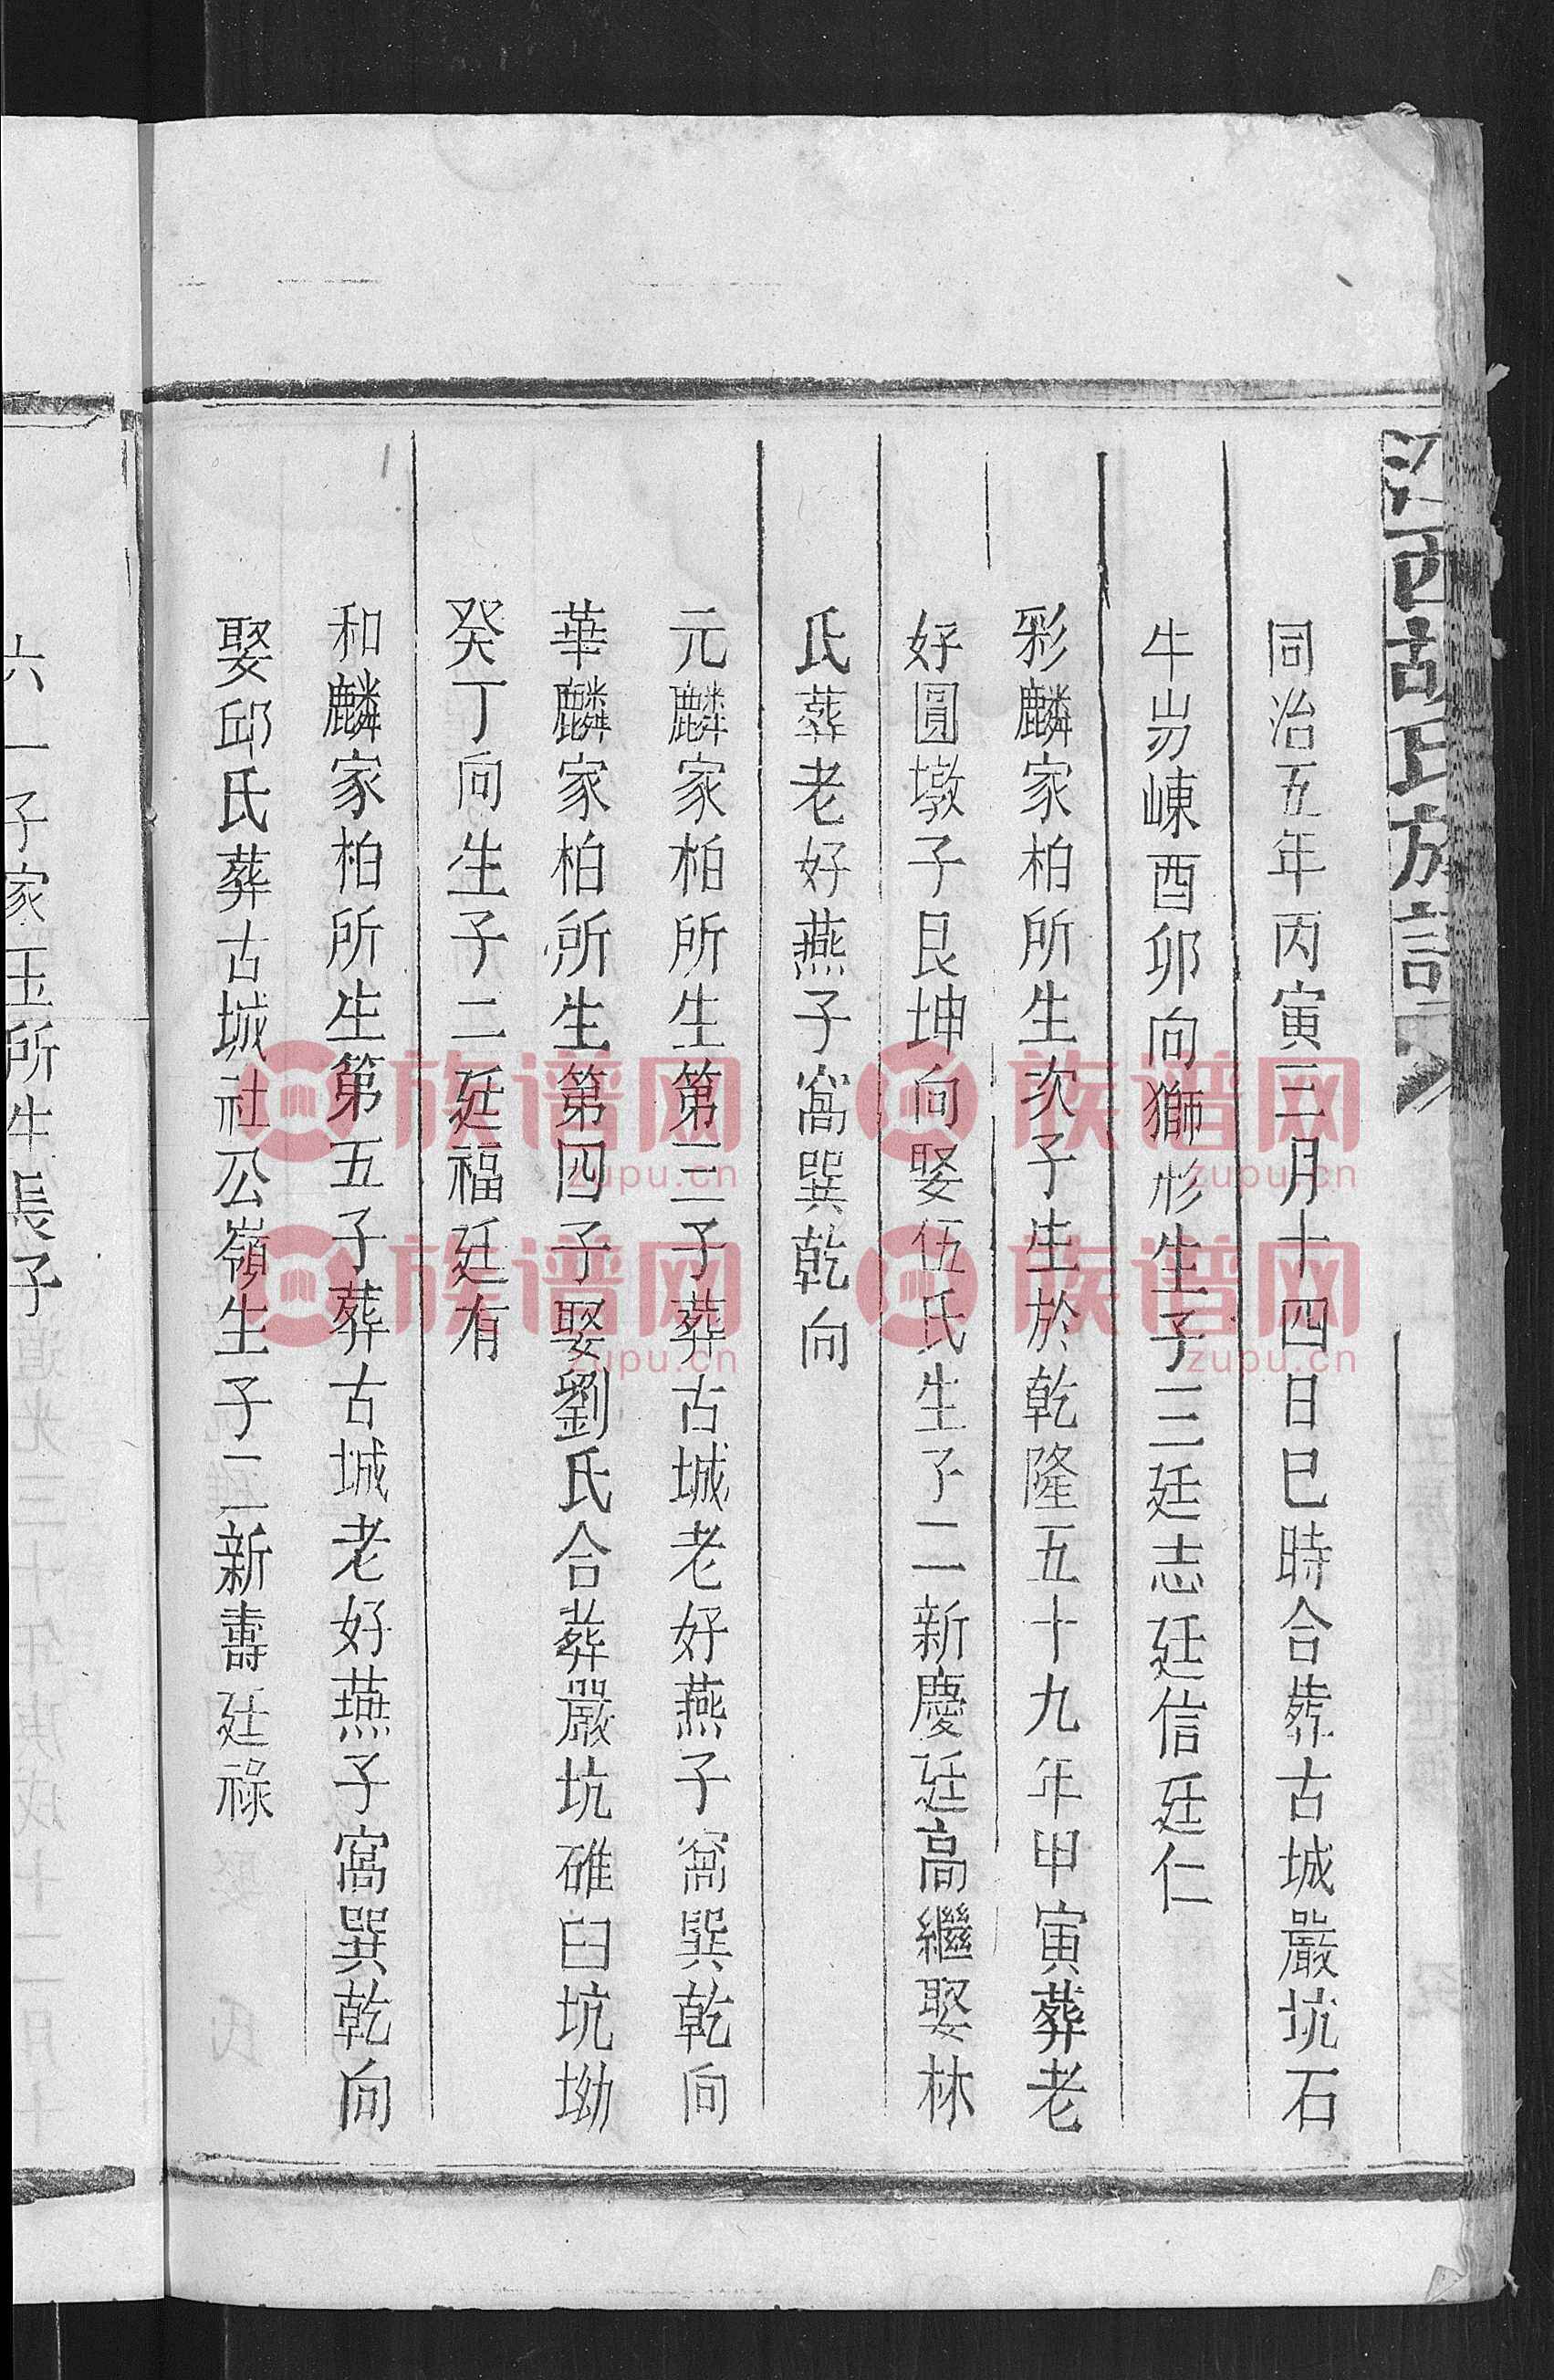 江西胡氏族譜
同治五年丙寅三月十四日巳時合葬古城嚴坑石
牛岃崠酉卯向獅形生子三廷志廷信廷仁
彩麟家柏所生次子生於乾隆五十九年甲寅葬老
好圓墩子艮坤向娶伍氏生子二新慶廷高繼娶林
氏葬老好燕子窩巽乾向
元麟家柏所生第三子葬古城老好燕子窩巽乾向
華麟家柏所生第四子娶劉氏合葬嚴坑碓臼坑坳
癸丁向生子二廷福廷有
和麟家柏所生第五子葬古城老好燕子窩巽乾向
娶邱氏葬古城社公嶺生子二新壽廷祿
六一子家玉所生長子
族谱网
zupu.cn
族谱网
zupu.cn
族谱网
zupu.cn
族谱网
zupu.cn